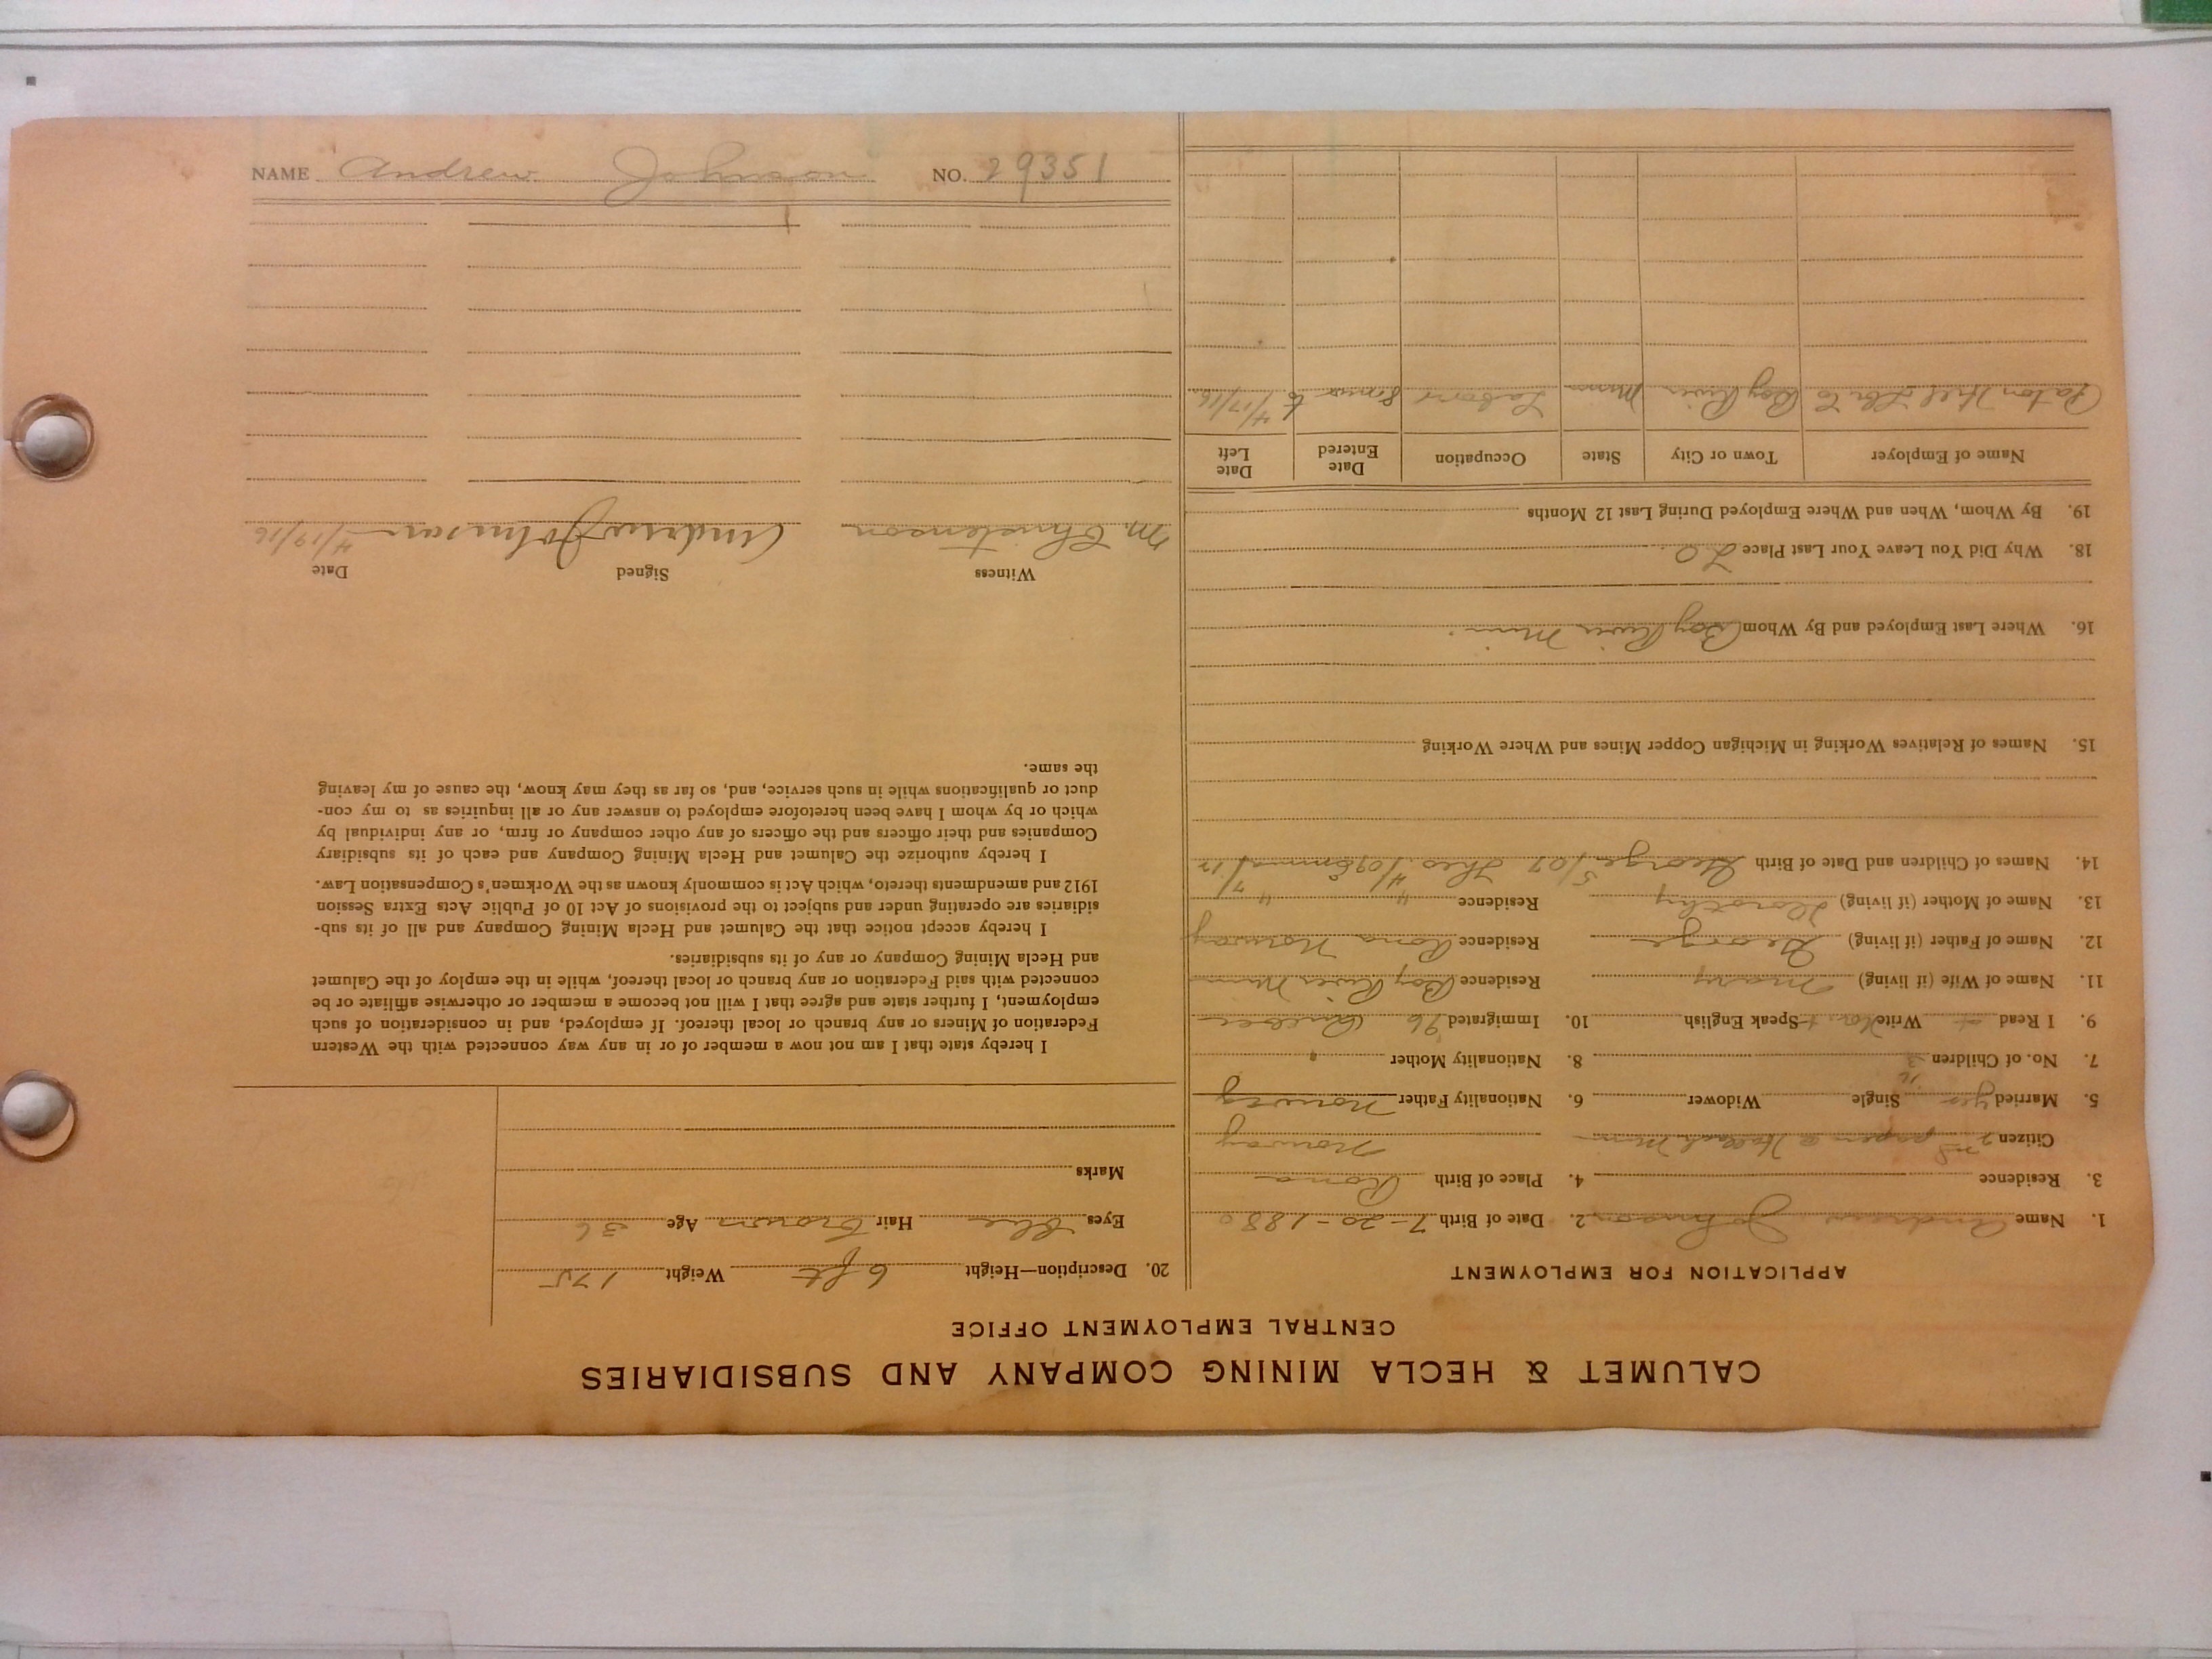 CALUMET & HECLA MINING COMPANY AND SUBSIDIARIES
CENTRAL EMPLOYMENT OFFICE
APPLICATION FOR EMPLOYMENT
1. Name Andrew Johnson 2. Date of Birth 7-20-1880
3. Residence 4. Place of Birth Rona
Citizen papers Minn Norway
5. Married yes Single Widower 6. Nationality Father Norway
7. No. of Children 3 8. Nationality Mother "
9. I Read Write Speak English 10. Immigrated 96
11. Name of Wife (if living) Mary Residence Boy River Minn
12. Name of Father (if living) George Residence Rona Norway
13. Name of Mother (if living) Dorothy Residence " "
14. Names of Children and Date of Birth George 5/07 Theo. 4/09 Emma 7/12
15. Names of Relatives Working in Michigan Copper Mines and Where Working
16. Where Last Employed and By Whom Boy River Minn.
18. Why Did You Leave Your Last Place L.O.
19. By Whom, When and Where Employed During Last 12 Months
Name of Employer Town or City State Occupation Date Entered Date Left
Boy River Minn Labor 8 mos to 4/17/16
20. Description—Height 6 ft Weight 175
Eyes Blue Hair Brown Age 36
Marks
I hereby state that I am not now a member of or in any way connected with the Western
Federation of Miners or any branch or local thereof. If employed, and in consideration of such
employment, I further state and agree that I will not become a member or otherwise affiliate or be
connected with said Federation or any branch or local thereof, while in the employ of the Calumet
and Hecla Mining Company or any of its subsidiaries.
I hereby accept notice that the Calumet and Hecla Mining Company and all of its sub-
sidiaries are operating under and subject to the provisions of Act 10 of Public Acts Extra Session
1912 and amendments thereto, which Act is commonly known as the Workmen's Compensation Law.
I hereby authorize the Calumet and Hecla Mining Company and each of its subsidiary
Companies and their officers and the officers of any other company or firm, or any individual by
which or by whom I have been heretofore employed to answer any or all inquiries as to my con-
duct or qualifications while in such service, and, so far as they may know, the cause of my leaving
the same.
Witness Signed Date
M. Christenson Andrew Johnson 4/19/16
NAME Andrew Johnson NO. 29351